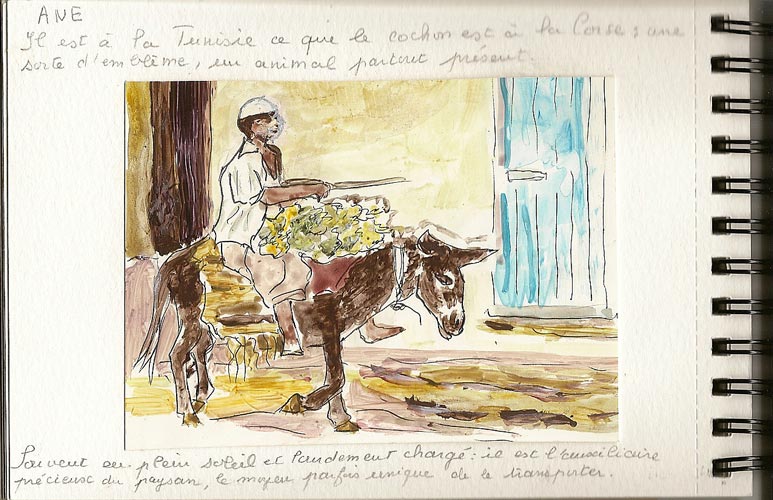 ANE
Il est à la Tunisie ce que le cochon est à la Corse : une
sorte d'emblème, un animal partout présent.
Souvent en plein soleil et lourdement chargé : il est l'auxiliaire
précieux du paysan, le moyen parfois unique de le transporter.